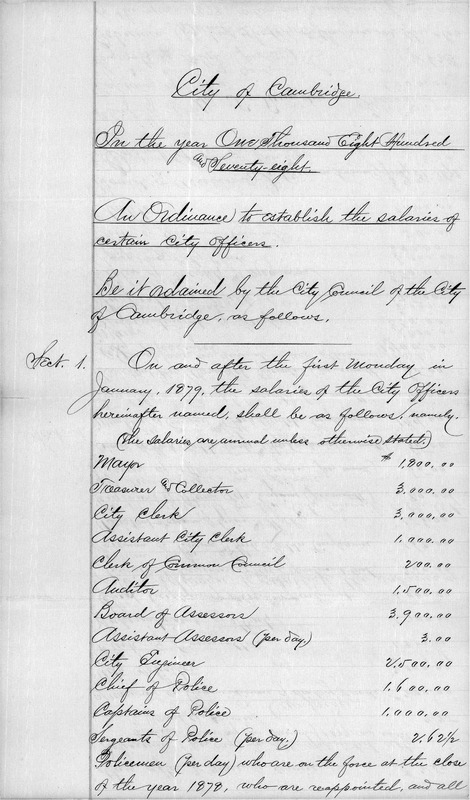 City of Cambridge.
In the year One Thousand Eight Hundred
and Seventy-eight.
An Ordinance to establish the salaries of
certain City Officers.
Be it ordained by the City Council of the City
of Cambridge, as follows.
Sect. 1. On and after the first Monday in
January, 1879, the salaries of the City Officers
hereinafter named, shall be as follows, namely.
(The salaries are annual unless otherwise stated.)
Mayor $ 1,800.00
Treasurer and Collector 3,000.00
City Clerk 3,000.00
Assistant City Clerk 1,000.00
Clerk of Common Council 200.00
Auditor 1,500.00
Board of Assessors 3,900.00
Assistant Assessors (per day.) 3.00
City Engineer 2,500.00
Chief of Police 1,600.00
Captains of Police 1,000.00
Sergeants of Police (per day.) 2.62 1/2
Policemen (per day) who are on the force at the close
of the year 1878, who are reappointed, and all